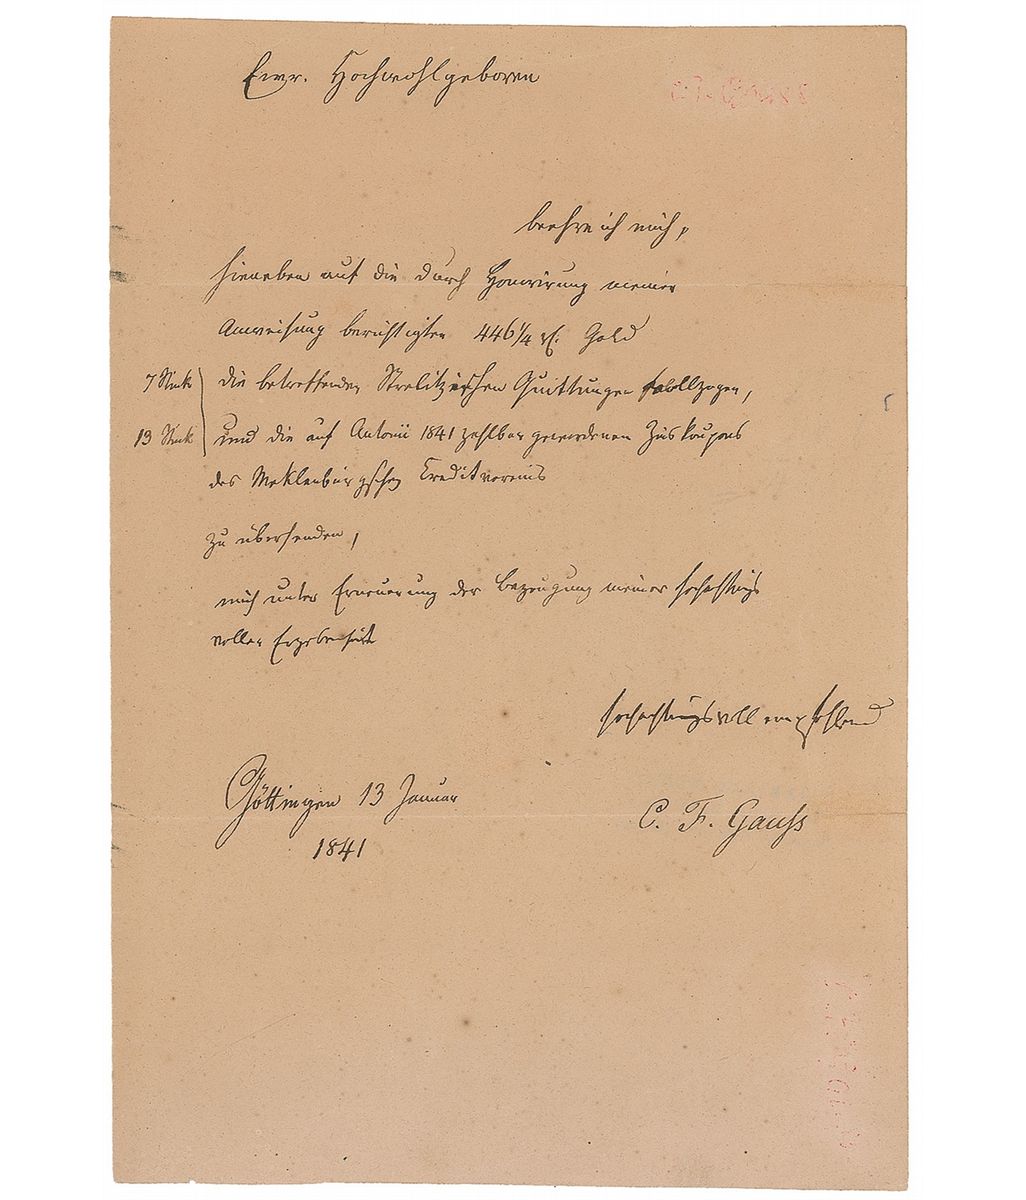 Ewr. Hochwohlgeboren
beehre ich mich,
hieneben auf die durch Honorirung meiner
Anweisung berichtigten 446 1/4 rf. Gold
7 Stück die betreffenden Strelitzischen Quittungen vollzogen,
13 Stück und die auf Antonii 1841 zahlbar gewordenen Zinskoupons
des Meklenburgschen Creditvereins
zu übersenden,
mich unter Erneuerung der Bezeugung meiner hochachtungs
voller Ergebenheit
hochachtungsvoll empfehlend
Göttingen 13 Januar
1841
C. F. Gauss